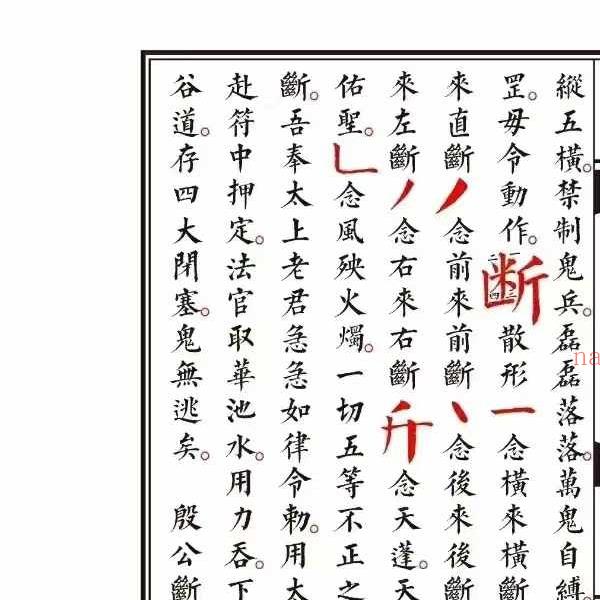 縱五橫。禁制鬼兵。磊磊落落。萬鬼自縛。
罡。毋令動作。断一二三四散形一念橫來橫斷
來直斷丿念前來前斷丶念後來後斷
來左斷丿念右來右斷千念天蓬。天
佑聖。乚念風殃火燭。一切五等不正之
斷。吾奉太上老君急急如律令勅。用太
赴符中押定。法官取華池水。用力吞。下
谷道。存四大閉塞。鬼無逃矣。 殷公斷
na